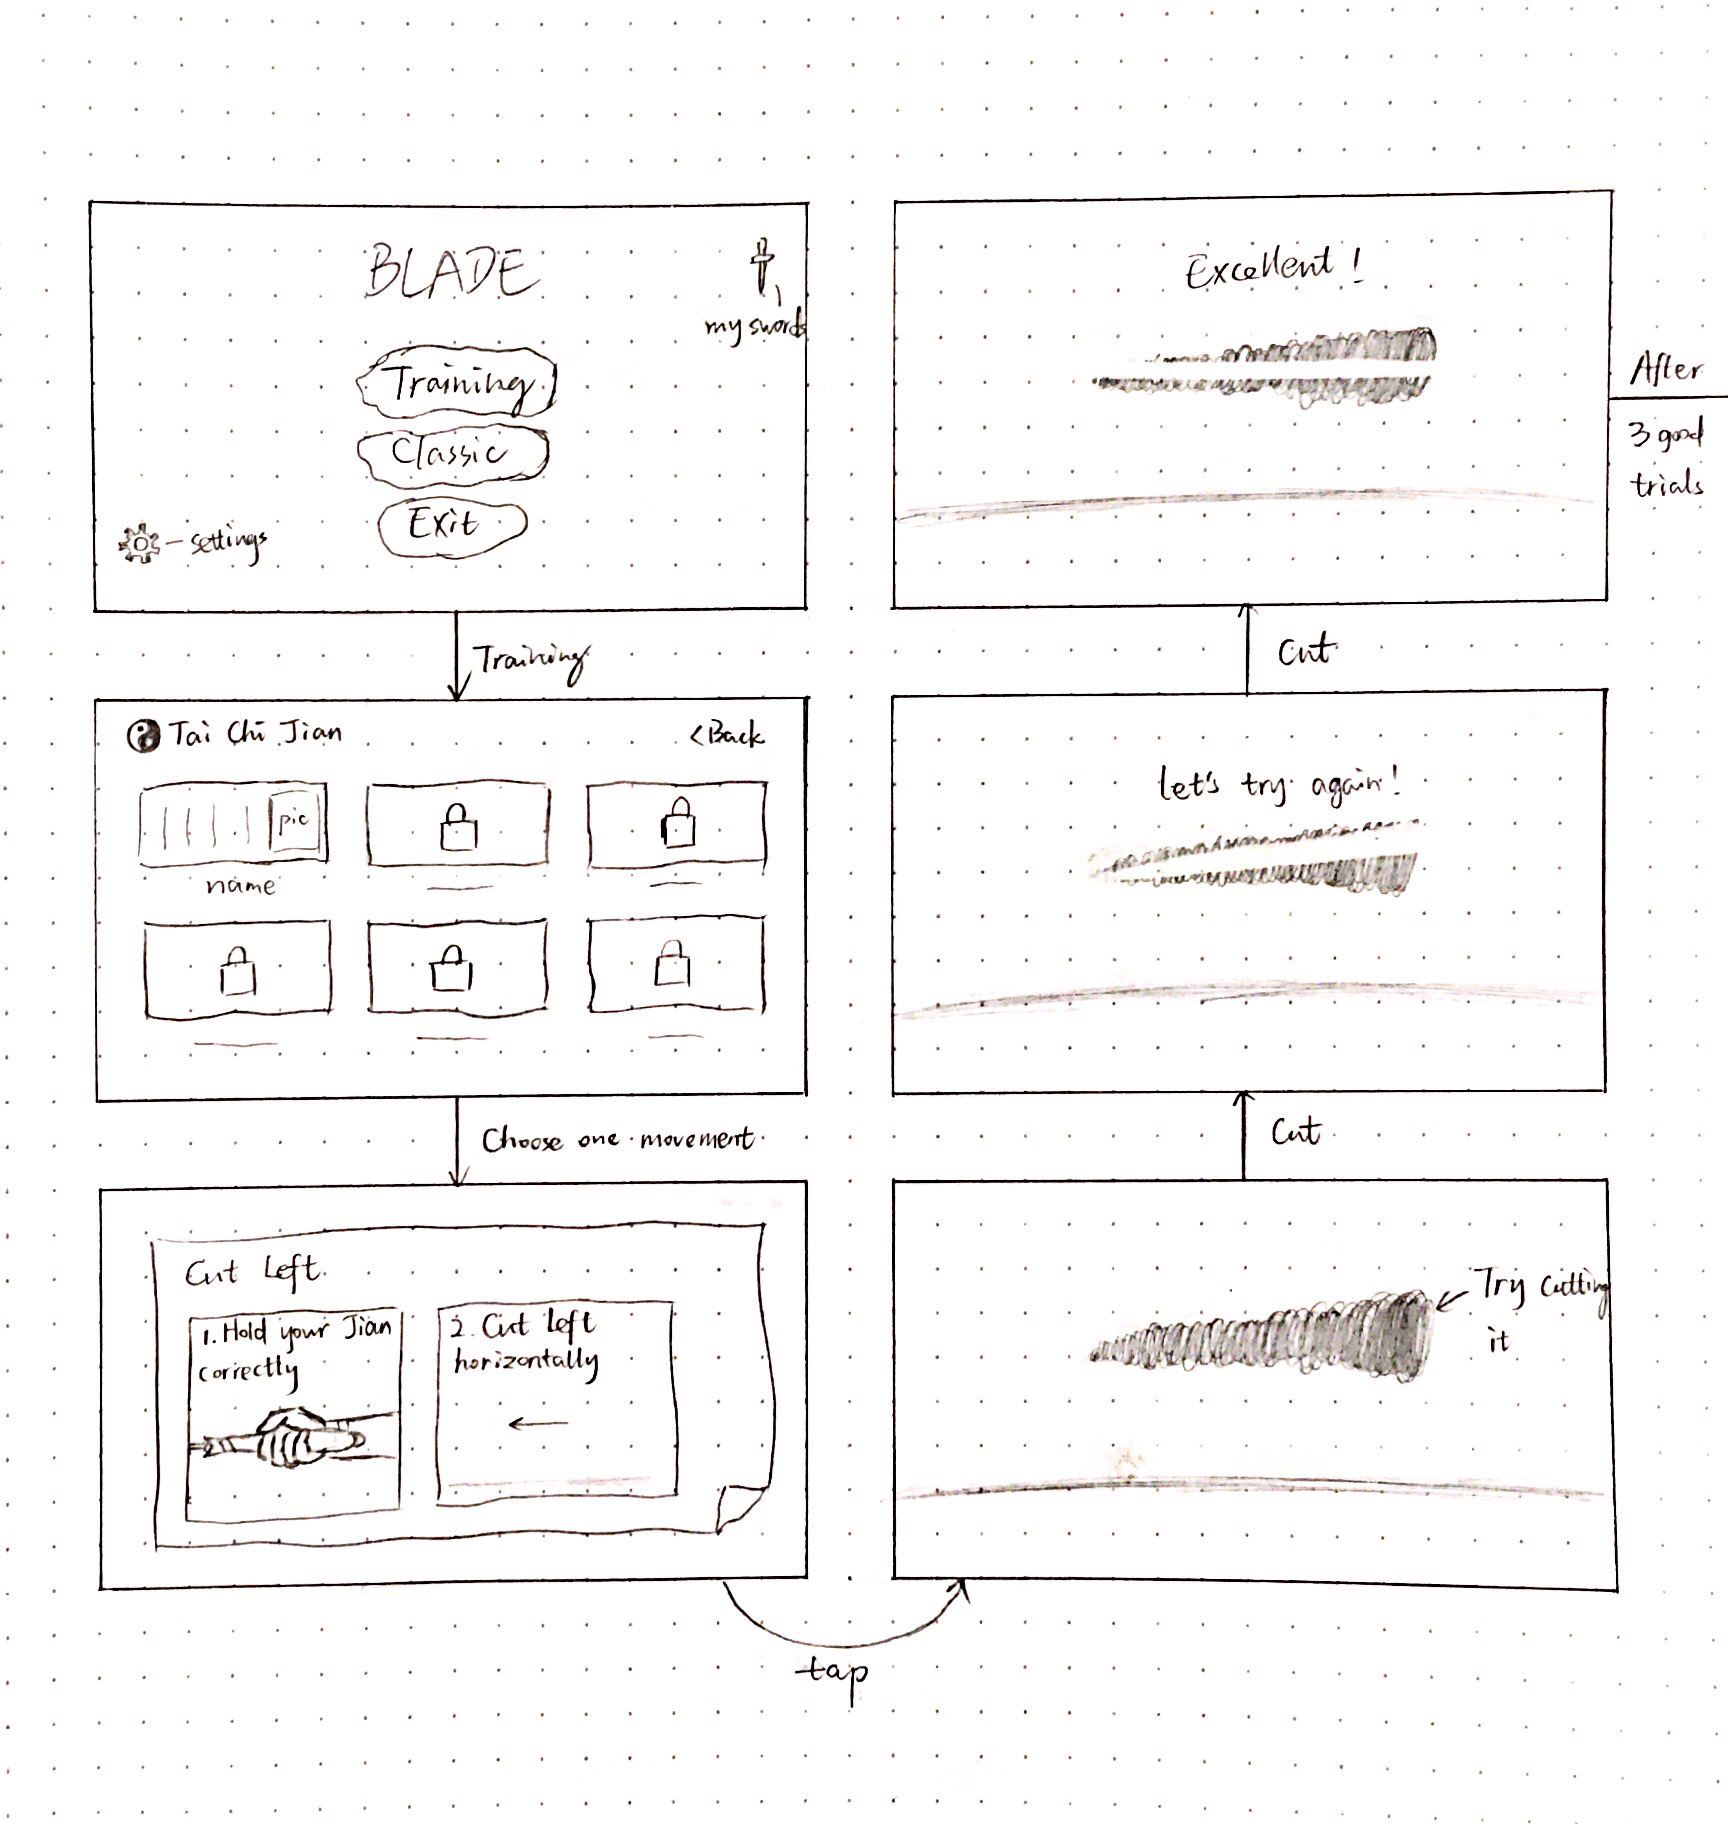 BLADE
my swords
Training
Classic
Exit
settings
Training
Tai Chi Jian
<Back
pic
name
Choose one movement
Cut Left
1. Hold your Jian
correctly
2. Cut left
horizontally
tap
Try cutting
it
Cut
let's try again!
Cut
Excellent!
After
3 good
trials